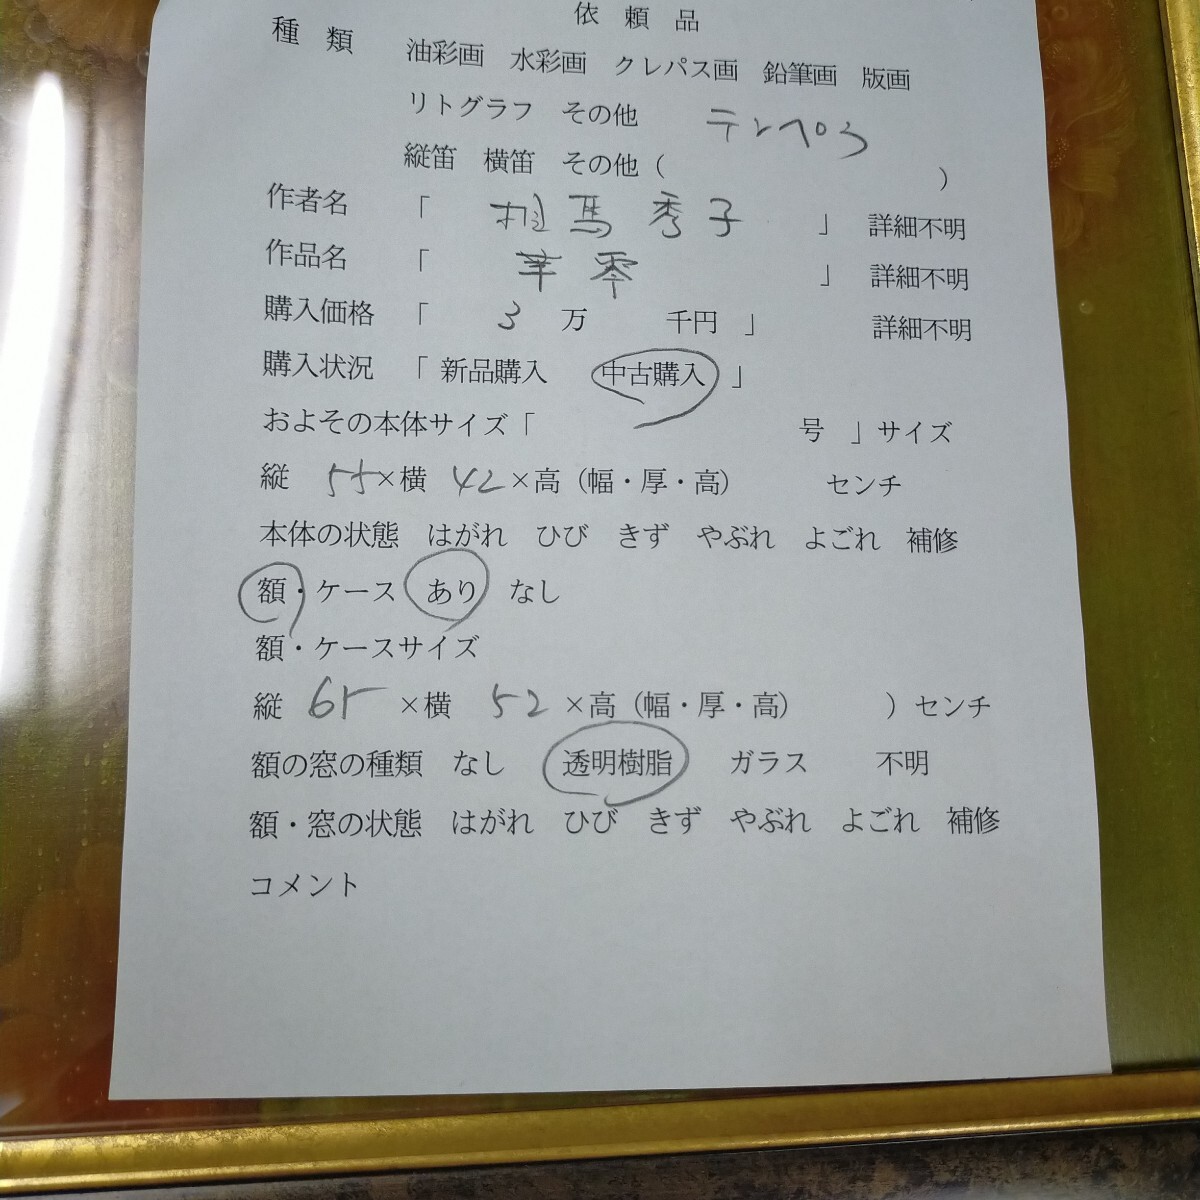 依頼品
種類 油彩画 水彩画 クレパス画 鉛筆画 版画
リトグラフ その他 テンペラ
縦笛 横笛 その他( )
作者名 「 相馬秀子 」 詳細不明
作品名 「 」 詳細不明
購入価格 「 3 万 千円 」 詳細不明
購入状況 「 新品購入 中古購入 」
およその本体サイズ「 号 」サイズ
縦 55×横 42×高(幅・厚・高) センチ
本体の状態 はがれ ひび きず やぶれ よごれ 補修
額・ケース あり なし
額・ケースサイズ
縦 65 ×横 52 ×高(幅・厚・高) )センチ
額の窓の種類 なし 透明樹脂 ガラス 不明
額・窓の状態 はがれ ひび きず やぶれ よごれ 補修
コメント